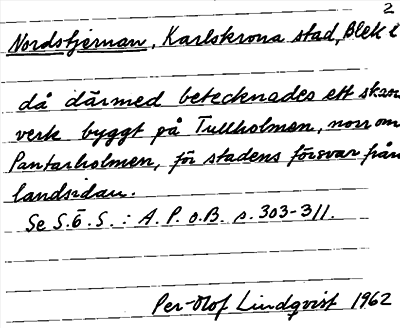 2
Nordstjernan, Karlskrona stad, Blek l
då därmed betecknades ett skans
verk byggt på Tullholmen, norr om
Pantarholmen, för stadens försvar från
landsidan.
Se S.Ö.S. : A. P. o.B. s. 303-311.
Per-Olof Lindqvist 1962